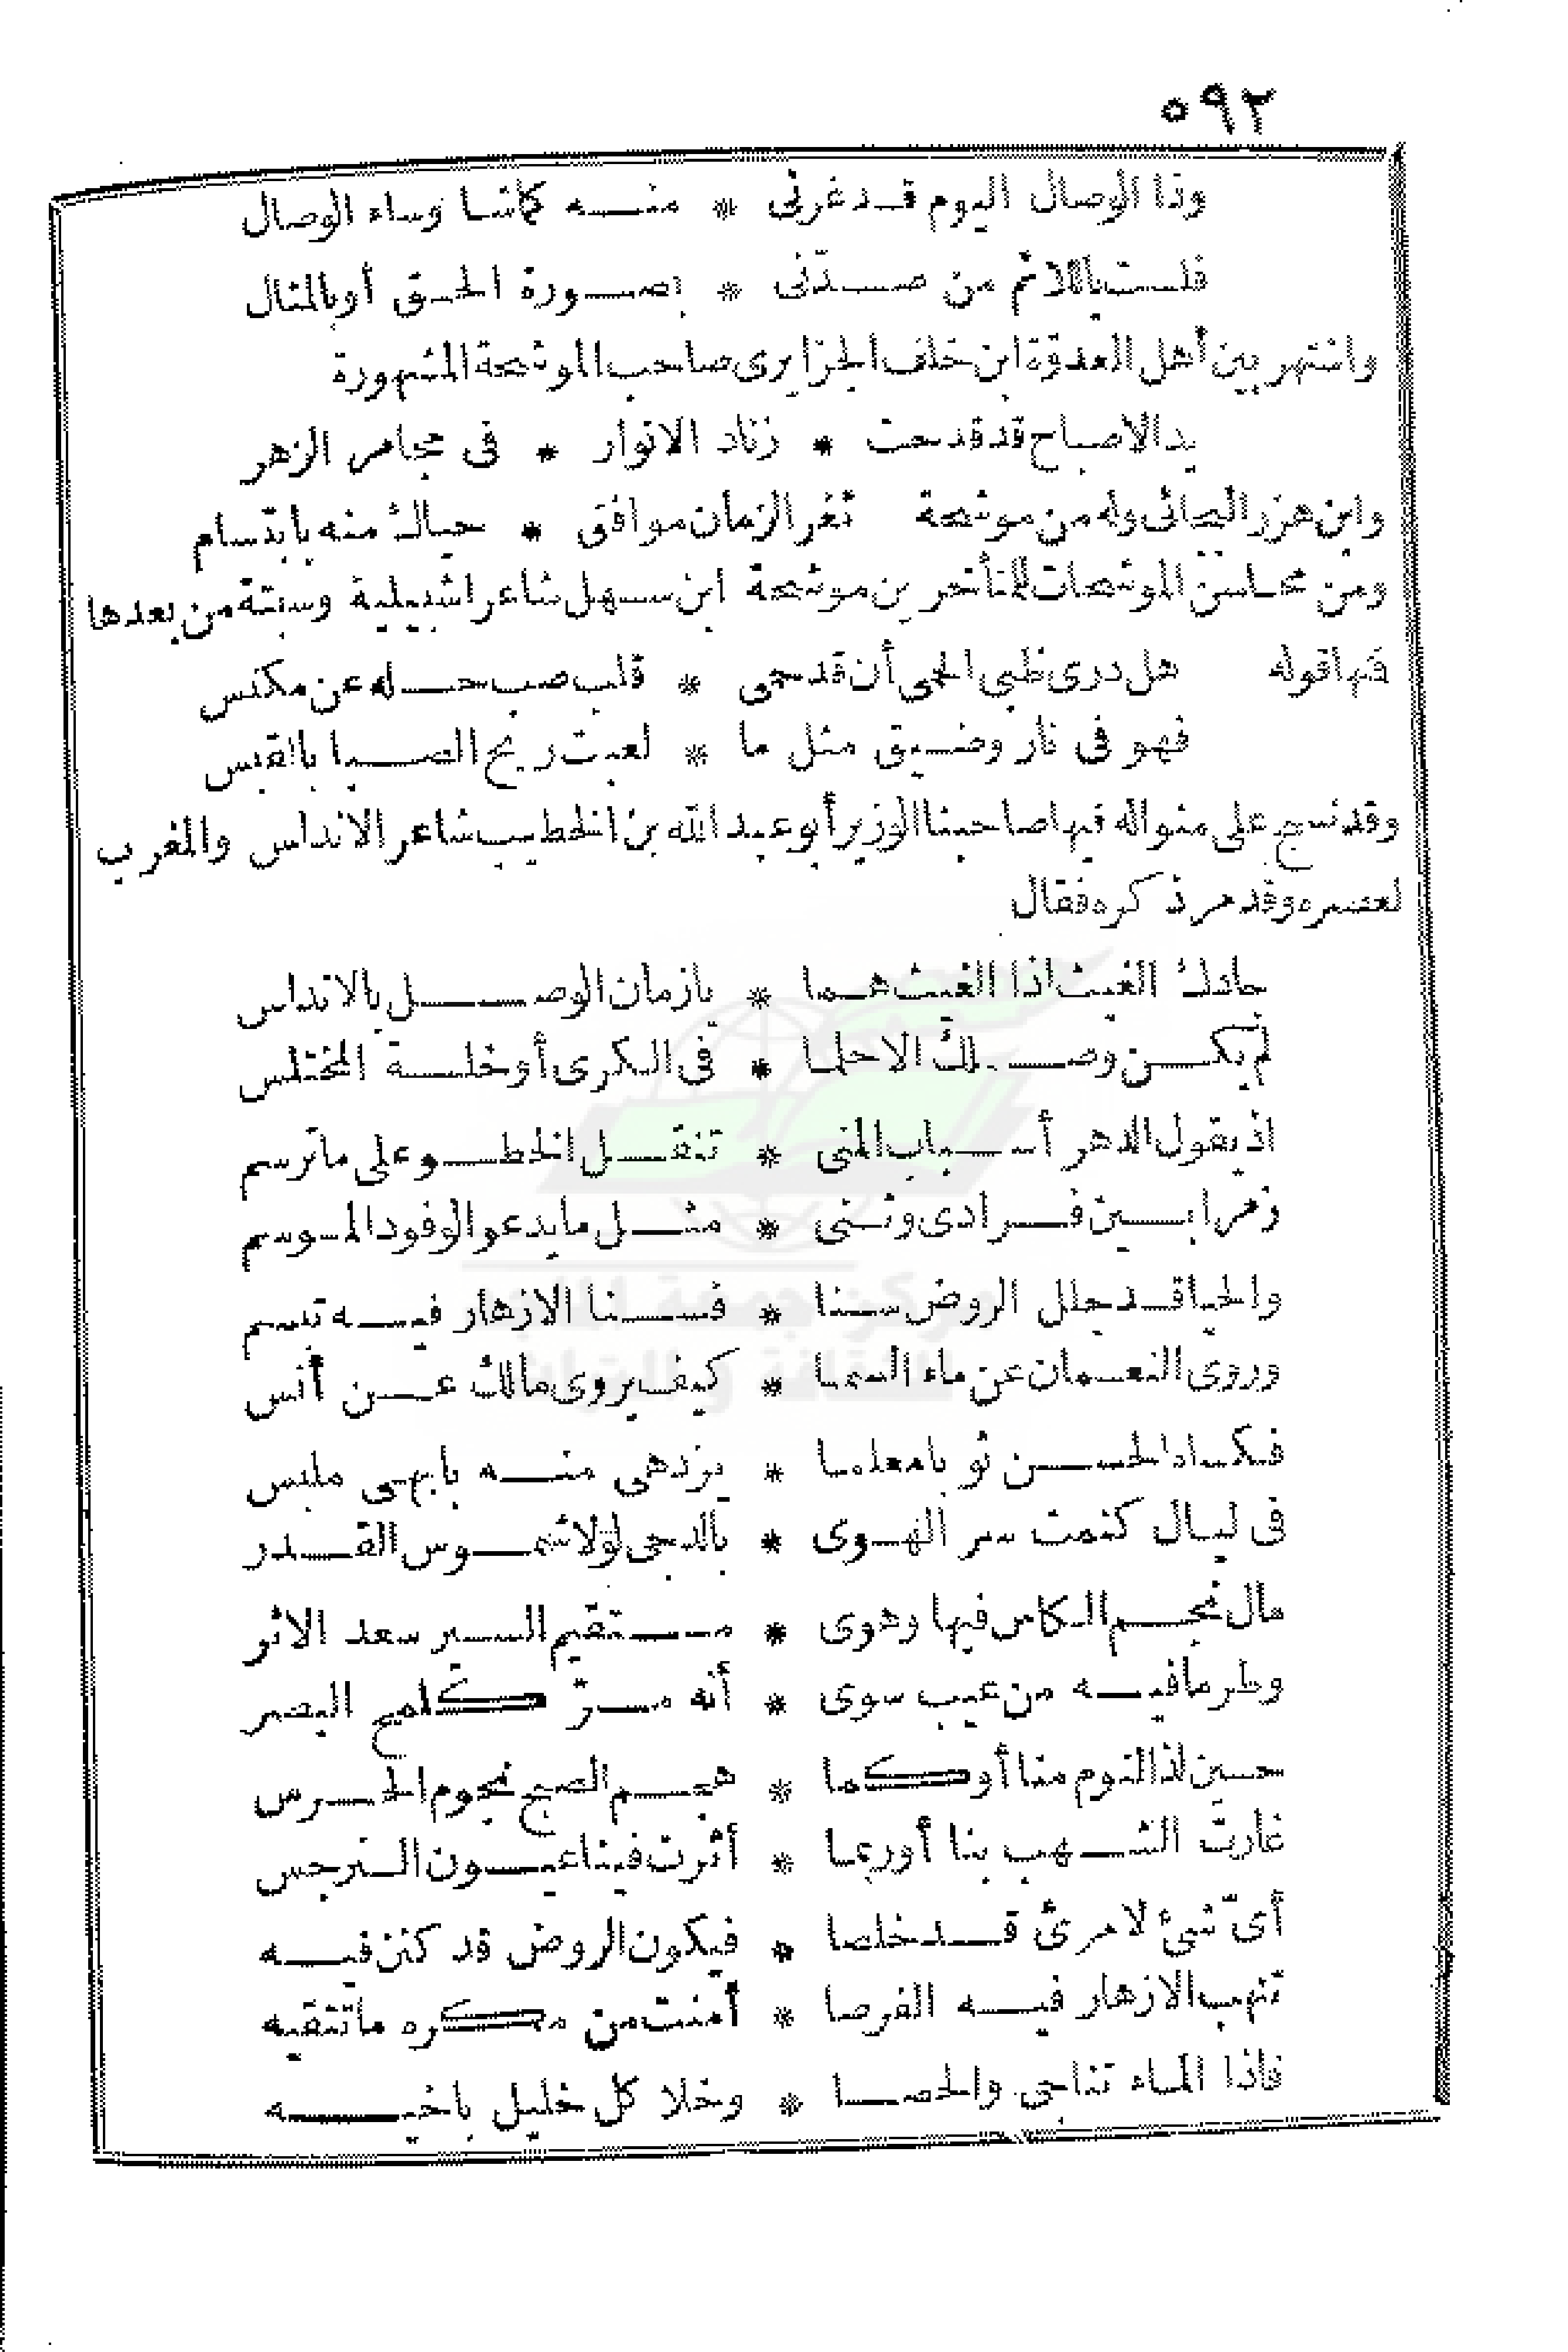 ٥٩٢
وذا الوصال اليوم قد غرنى * منه كماشا وساء الوصال
فلست باللائم من صدّنى * بصورة الحق أو بالمثال
واشتهر بين أهل العدوة ابن خلف الجزايرى صاحب الموشحة المشهورة
يد الاصباح قد قدحت * زناد الانوار * فى مجامر الزهر
وابن هزر البجائى وله من موشحة ثغر الزمان موافق * حياك منه بابتسام
ومن محاسن الموشحات للمتأخرين موشحة ابن سهل شاعر اشبيلية وسبتة من بعدها
فمنها قوله هل درى ظبى الحمى أن قد حمى * قلب صب حله عن مكنس
فهو فى نار وضيق مثل ما * لعبت ريح الصبا بالقبس
وقد نسج على منواله فيها صاحبنا الوزير أبو عبد الله بن الخطيب شاعر الاندلس والمغرب
لعصره وقد مر ذكره فقال
جادك الغيث اذا الغيث هما * يا زمان الوصل بالاندلس
لم يكن وصلك الا حلما * فى الكرى أو خلسة المختلس
اذ يقول الدهر أسباب المنى * تنقل الخطو على ما ترسم
زمرا بين فرادى وثنى * مثل ما يدعو الوفود الموسم
والحيا قد جلل الروض سنا * فسنا الازهار فيه تبسم
وروى النعمان عن ماء السما * كيف يروى مالك عن أنس
فكساه الحسن ثوبا معلما * يزدهى منه بابهى ملبس
فى ليال كتمت سر الهوى * بالدجى لولا شموس القدر
مال نجم الكاس فيها وهوى * مستقيم السير سعد الاثر
وطر ما فيه من عيب سوى * أنه مرّ كلمح البصر
حين لذ النوم منا أو كما * هجم الصبح نجوم الحرس
غارت الشهب بنا أو ربما * أثرت فينا عيون النرجس
أىّ شئ لامرئ قد خلصا * فيكون الروض قد كنن فيه
تنهب الازهار فيه الفرصا * أمنت من مكره ما تتقيه
فاذا الماء تناجى والحصا * وخلا كل خليل باخيه